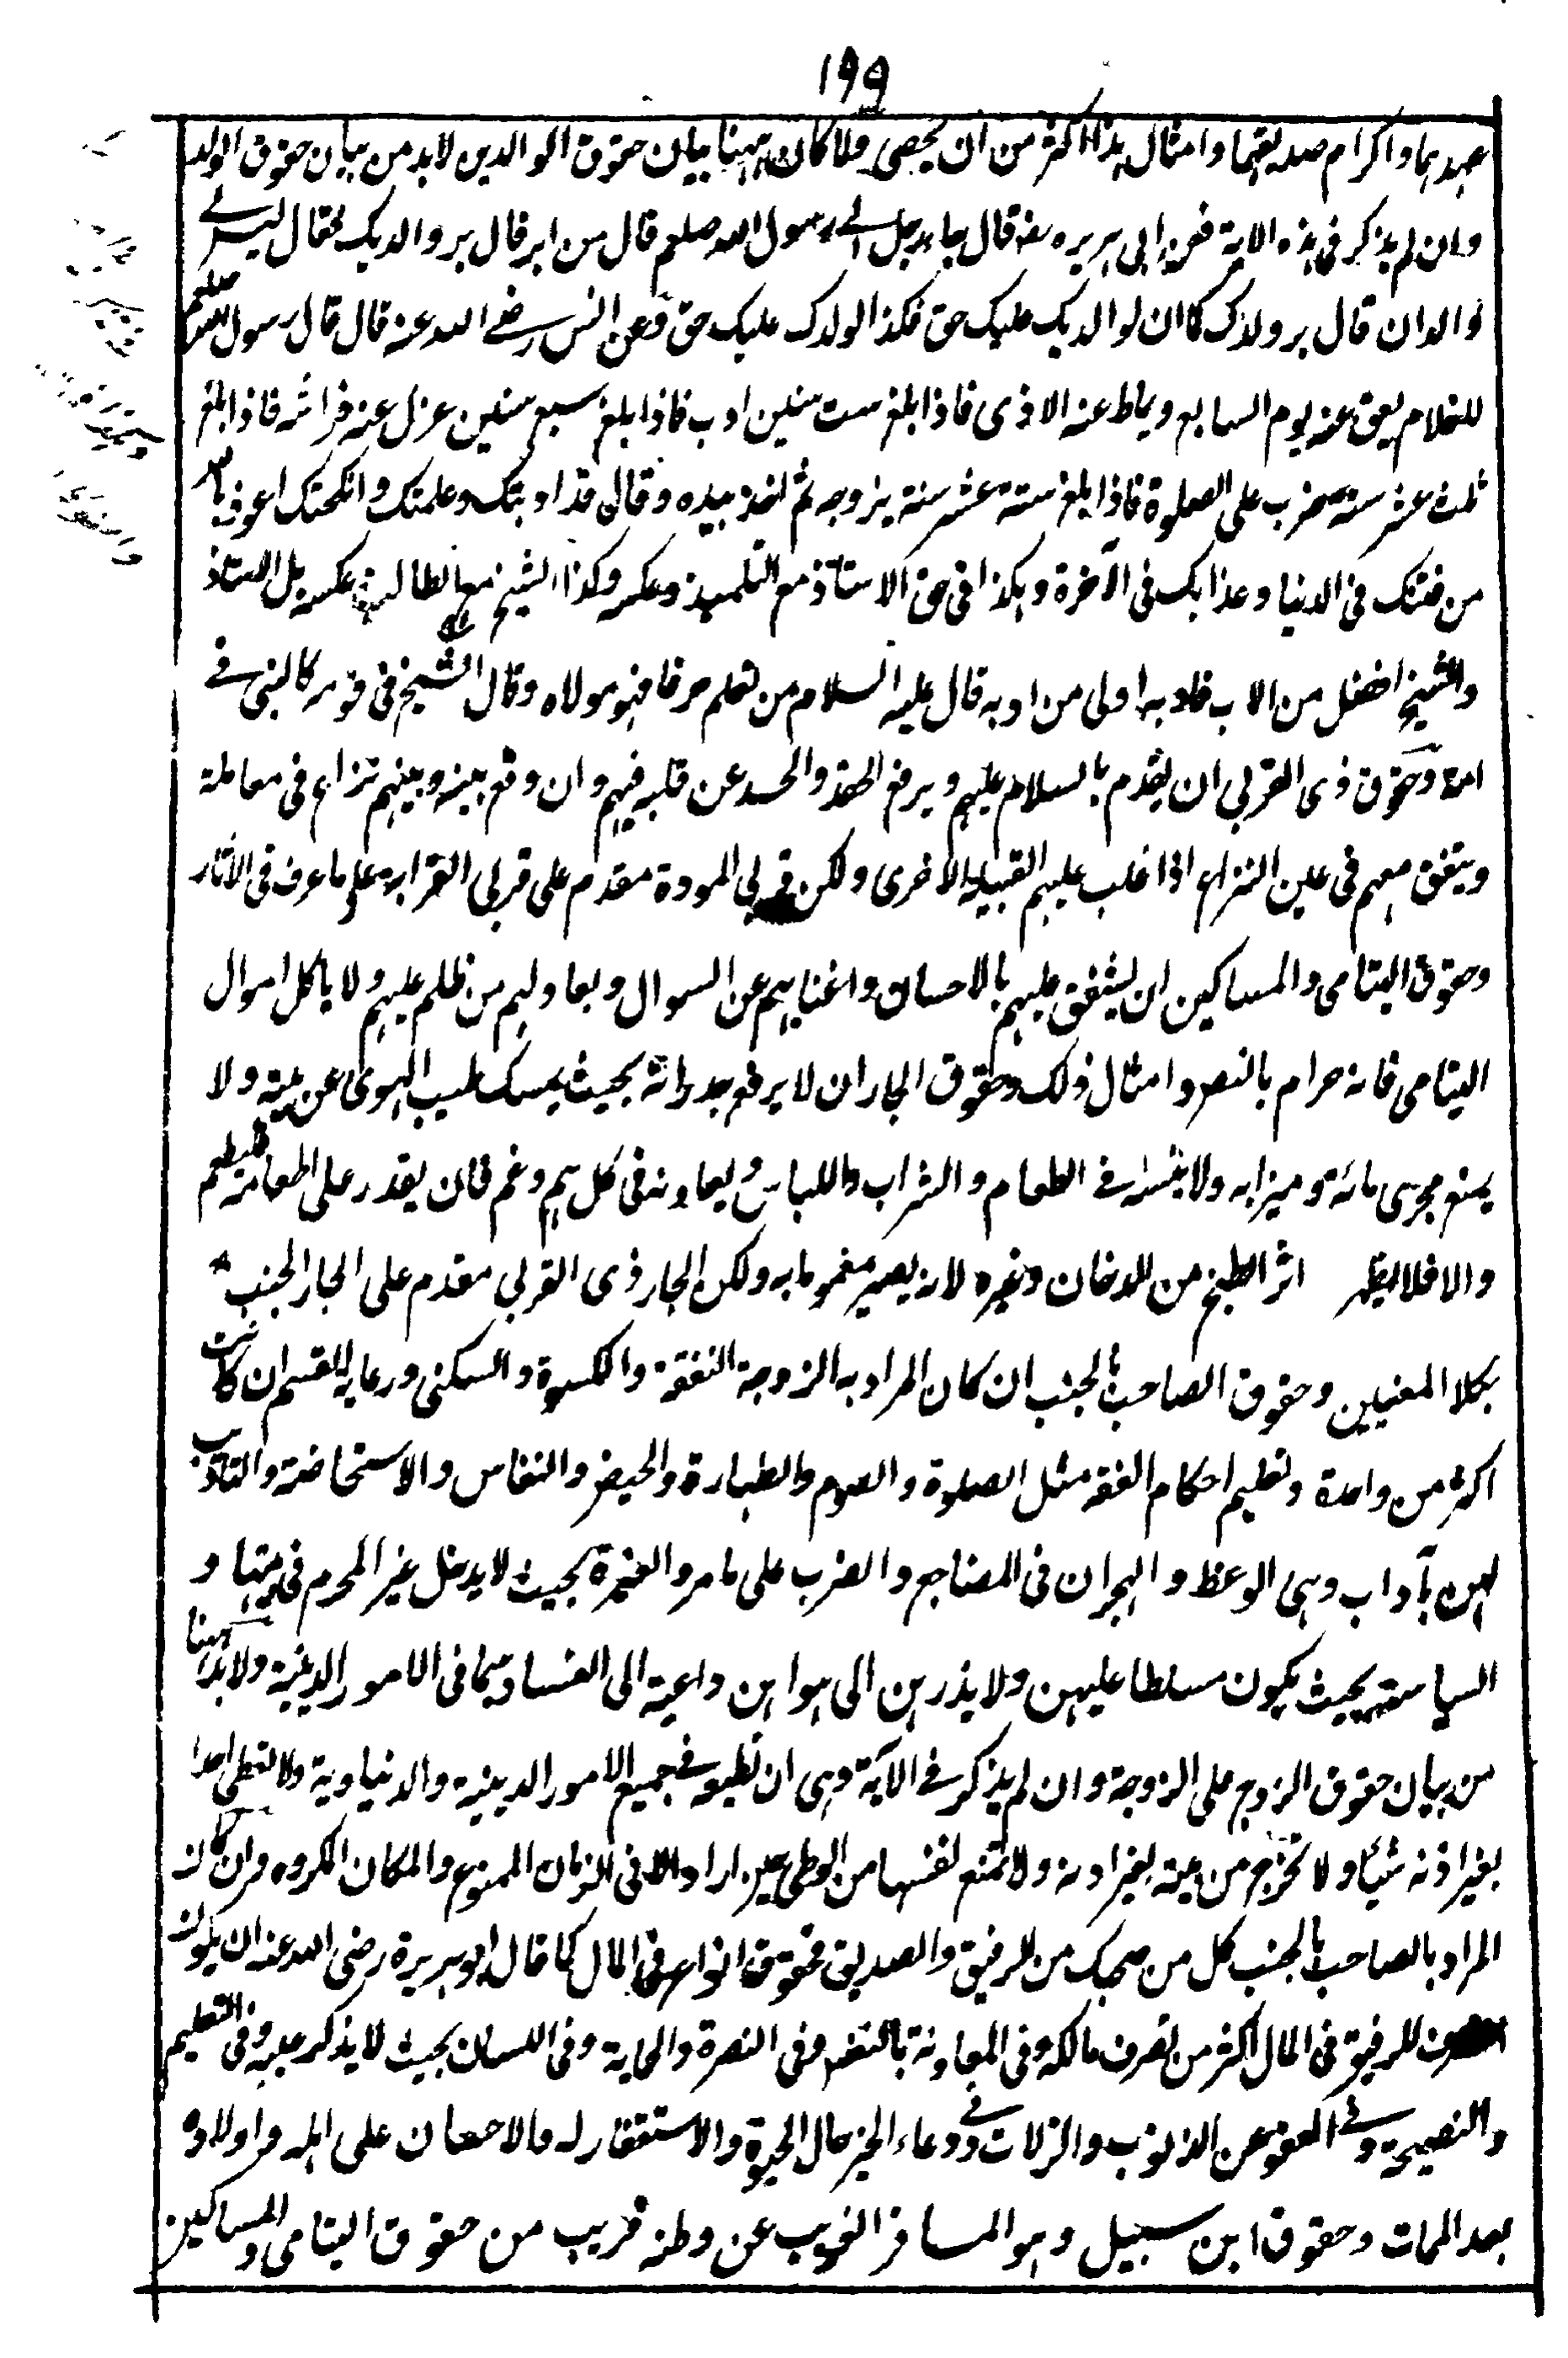 ١٩٩
عهدهما واكرام صديقهما وامثال هذا اكثر من ان يحصى ولما كان ههنا بيان حقوق الوالدين لابد من بيان حقوق الولد
وان لم يذكر فى هذه الاية فعن ابى هريره رض قال جاء رجل الى رسول الله صلعم قال من ابر قال بر والديك فقال ليس لى
والدان قال بر ولدك كما ان لوالديك عليك حق فكذا لولدك عليك حق وعن انس رضى الله عنه قال قال رسول الله صلعم
للغلام يعق عنه يوم السابع ويماط عنه الاذى فاذا بلغ ست سنين ادب فاذا بلغ سبع سنين عزل عنه فراشه فاذا بلغ
ثلث عشر سنة ضرب على الصلوة فاذا بلغ ستة عشر سنة يزوجه ثم اخذ بيده وقال قد ادبتك وعلمتك وانكحتك اعوذ بالله
من فتنتك فى الدنيا وعذابك فى الآخرة وهكذا فى حق الاستاذ مع التلميذ وعكسه وكذا الشيخ مع الطالب وعكسه بل الاستاذ
والشيخ افضل من الاب فادبه اولى من ادبه قال عليه السلام من تعلم حرفا فهو مولاه وقال الشيخ فى قومه كالنبى فى
امته وحقوق ذى القربى ان يقدم بالسلام عليهم ويرفع الحقد والحسد عن قلبه فيهم وان وقع بينه وبينهم نزاع فى معاملة
ويتفق معهم فى عين النزاع اذا غلب عليهم القبيلة الاخرى ولكن قربى المودة مقدم على قربى القرابة على ما عرف فى الآثار
وحقوق اليتامى والمساكين ان يشفق عليهم بالاحسان واغنايهم عن السوال ويعاونهم من ظلم عليهم ولا ياكل اموال
اليتامى فانه حرام بالنص وامثال ذلك وحقوق الجار ان لا يرفع جدرانه بحيث يمسك طيب الهوى عن بيته ولا
يمنع مجرى مائه وميزابه ولا ينساه فى الطعام والشراب واللباس ويعاونه فى كل هم وغم فان يقدر على اطعامه فليطعم
والا فلا يظهر اثر الطبخ من الدخان وغيره لانه يصير مغموما به ولكن الجار ذى القربى مقدم على الجار الجنب
بكلا المعنيين وحقوق الصاحب بالجنب ان كان المراد به الزوجة النفقة والكسوة والسكنى ورعاية القسم ان كانت
اكثر من واحدة وتعليم احكام الفقه مثل الصلوة والصوم والطهارة والحيض والنفاس والاستحاضة والتاديب
لهن بآداب وهى الوعظ والهجران فى المضاجع والضرب على ما مر والغيرة بحيث لا يدخل غير المحرم فى بيتها و
السياسة بحيث يكون مسلطا عليهن ولا يذرهن الى هواهن داعية الى الفساد سيما فى الامور الدينية ولابد ههنا
من بيان حقوق الزوج على الزوجة وان لم يذكر فى الآية وهى ان تطيعه فى جميع الامور الدينية والدنياوية ولا تعطى احدا
بغير اذنه شيئا ولا تخرج من بيته بغير اذنه ولا تمنع نفسها من الوطى حين اراد الا فى الزمان الممنوع والمكان المكروه وان كان
المراد بالصاحب بالجنب كل من صحبك من الرفيق والصديق فحقوق انواع فى المال كما قال ابو هريرة رضى الله عنه ان يكون
تصرف الرفيق فى المال اكثر من تصرف مالكه وفى المعاونة بالنفس وفى النصرة والحماية وفى اللسان بحيث لا يذكر عيبه وفى التعليم
والنصيحة وفى العفو عن الذنوب والزلات وفى دعاء الخير حال الحيوة والاستغفار له والاحسان على اهله واولاده
بعد الممات وحقوق ابن سبيل وهو المسافر الغريب عن وطنه قريب من حقوق اليتامى والمساكين